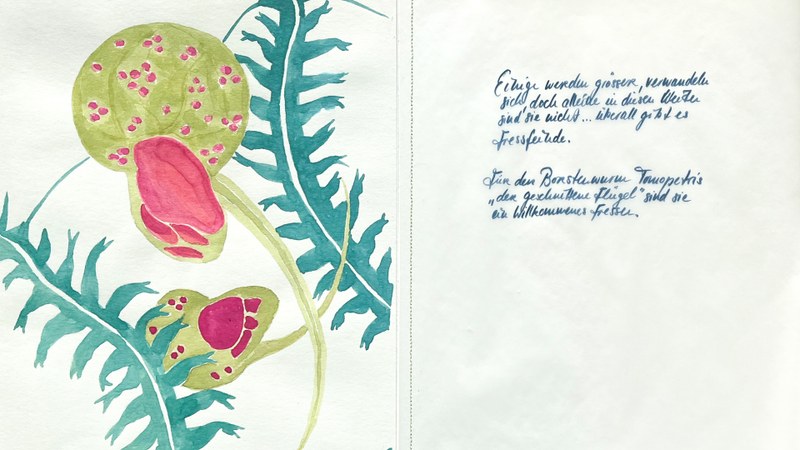 Einige werden grösser, verwandeln
sich, doch alleine in diesen Weiten
sind sie nicht... überall gibt es
Fressfeinde.
Für den Borstenwurm Tomopteris
„der geschnittene Flügel" sind sie
ein willkommenes Fressen.